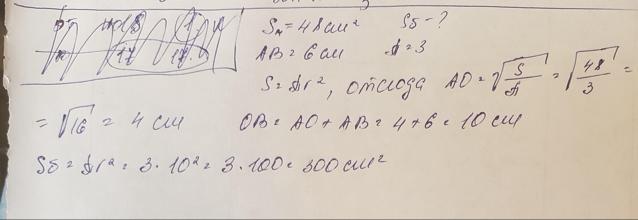 Sм = 48 см² Sб - ?
AB = 6 см π = 3
S = πr², отсюда AO = √(S/π) = √(48/3) =
= √16 = 4 см OB = AO + AB = 4 + 6 = 10 см
Sб = πr² = 3 · 10² = 3 · 100 = 300 см²